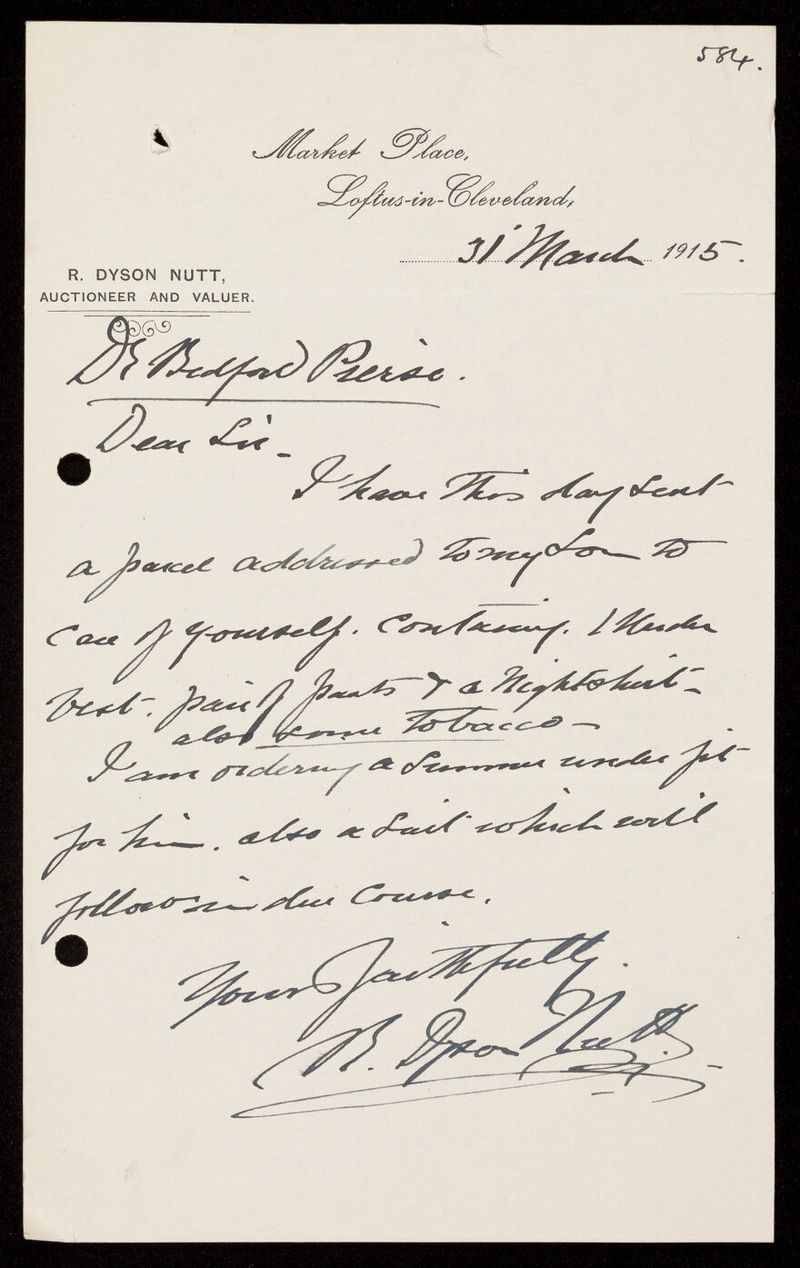 584.
Market Place,
Loftus-in-Cleveland,
31 March 1915.
R. DYSON NUTT,
AUCTIONEER AND VALUER.
Dr Bedford Pierse.
Dear Sir -
I have this day sent
a parcel addressed to my Son to
care of yourself. containing. 1 Under
vest. pair of pants & a Nightshirt -
also some Tobacco -
I am ordering a Summer under fit
for him. also a Suit which will
follow in due Course.
Yours faithfully.
R. Dyson Nutt.